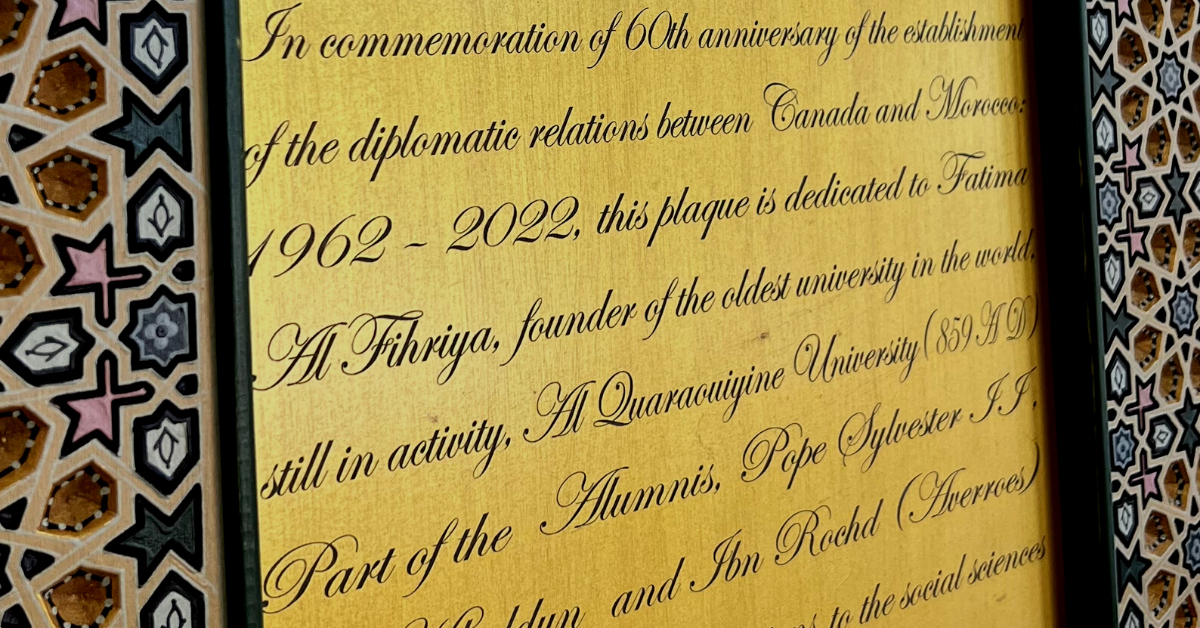 In commemoration of 60th anniversary of the establishment
of the diplomatic relations between Canada and Morocco:
1962 - 2022, this plaque is dedicated to Fatima
Al Fihriya, founder of the oldest university in the world,
still in activity, Al Quaraouiyine University (859 A D)
Part of the Alumnis, Pope Sylvester II,
and Ibn Rochd (Averroes)
to the social sciences